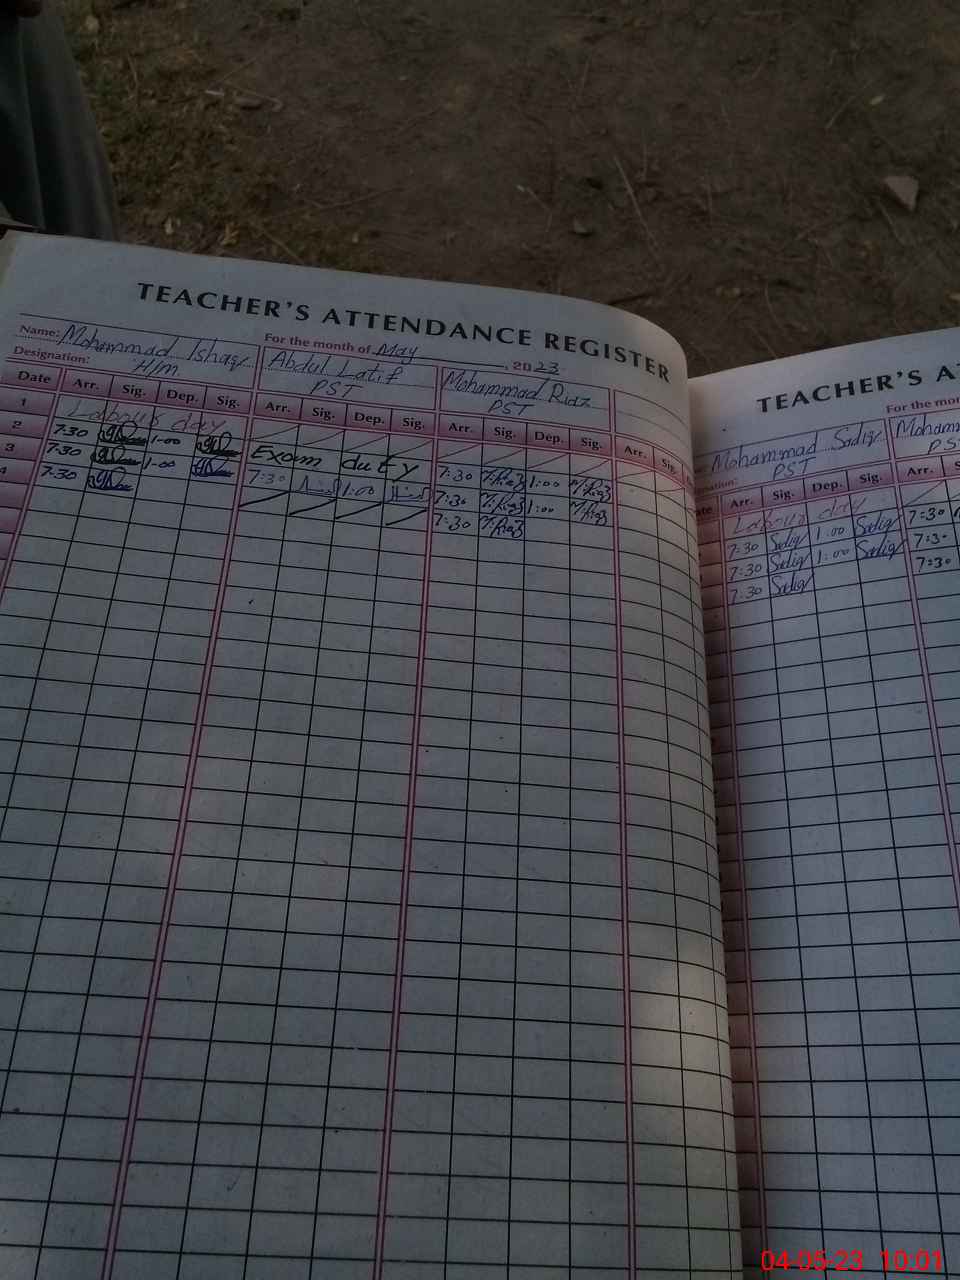 TEACHER'S ATTENDANCE REGISTER
Name: Mohammad Ishaq For the month of May, 2023
Designation: H/m Abdul Latif PST Mohammad Riaz PST
Date Arr. Sig. Dep. Sig. Arr. Sig. Dep. Sig. Arr. Sig. Dep. Sig. Arr. Sig.
1 Labour day
2 7:30 1:00 Exam duty 7:30 M.Riaz 1:00 M.Riaz
3 7:30 1:00 7:30 1:00 7:30 M.Riaz 1:00 M.Riaz
4 7:30 7:30 M.Riaz
TEACHER'S A
For the mon
Mohammad Sadiq PST Moham PS
Arr. Sig. Dep. Sig. Arr. S
Labour day
7:30 Sadiq 1:00 Sadiq 7:30
7:30 Sadiq 1:00 Sadiq 7:30
7:30 Sadiq 7:30
04-05-23 10:01